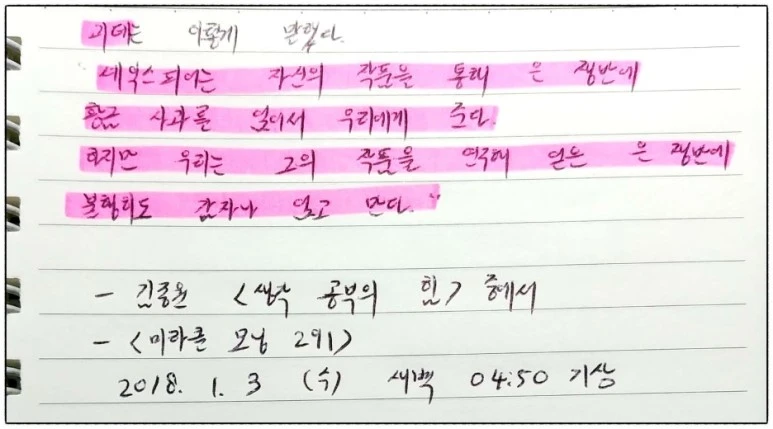 괴테는 이렇게 말했다.
"셰익스피어는 자신의 작품을 통해 은 쟁반에
황금 사과를 얹어서 우리에게 준다.
하지만 우리는 그의 작품을 연극해 얻는 은 쟁반에
불행히도 감자나 얹고 만다."
- 김종원 <생각 공부의 힘> 중에서
- <미라클 모닝 291>
2018. 1. 3 (수) 새벽 04:50 기상